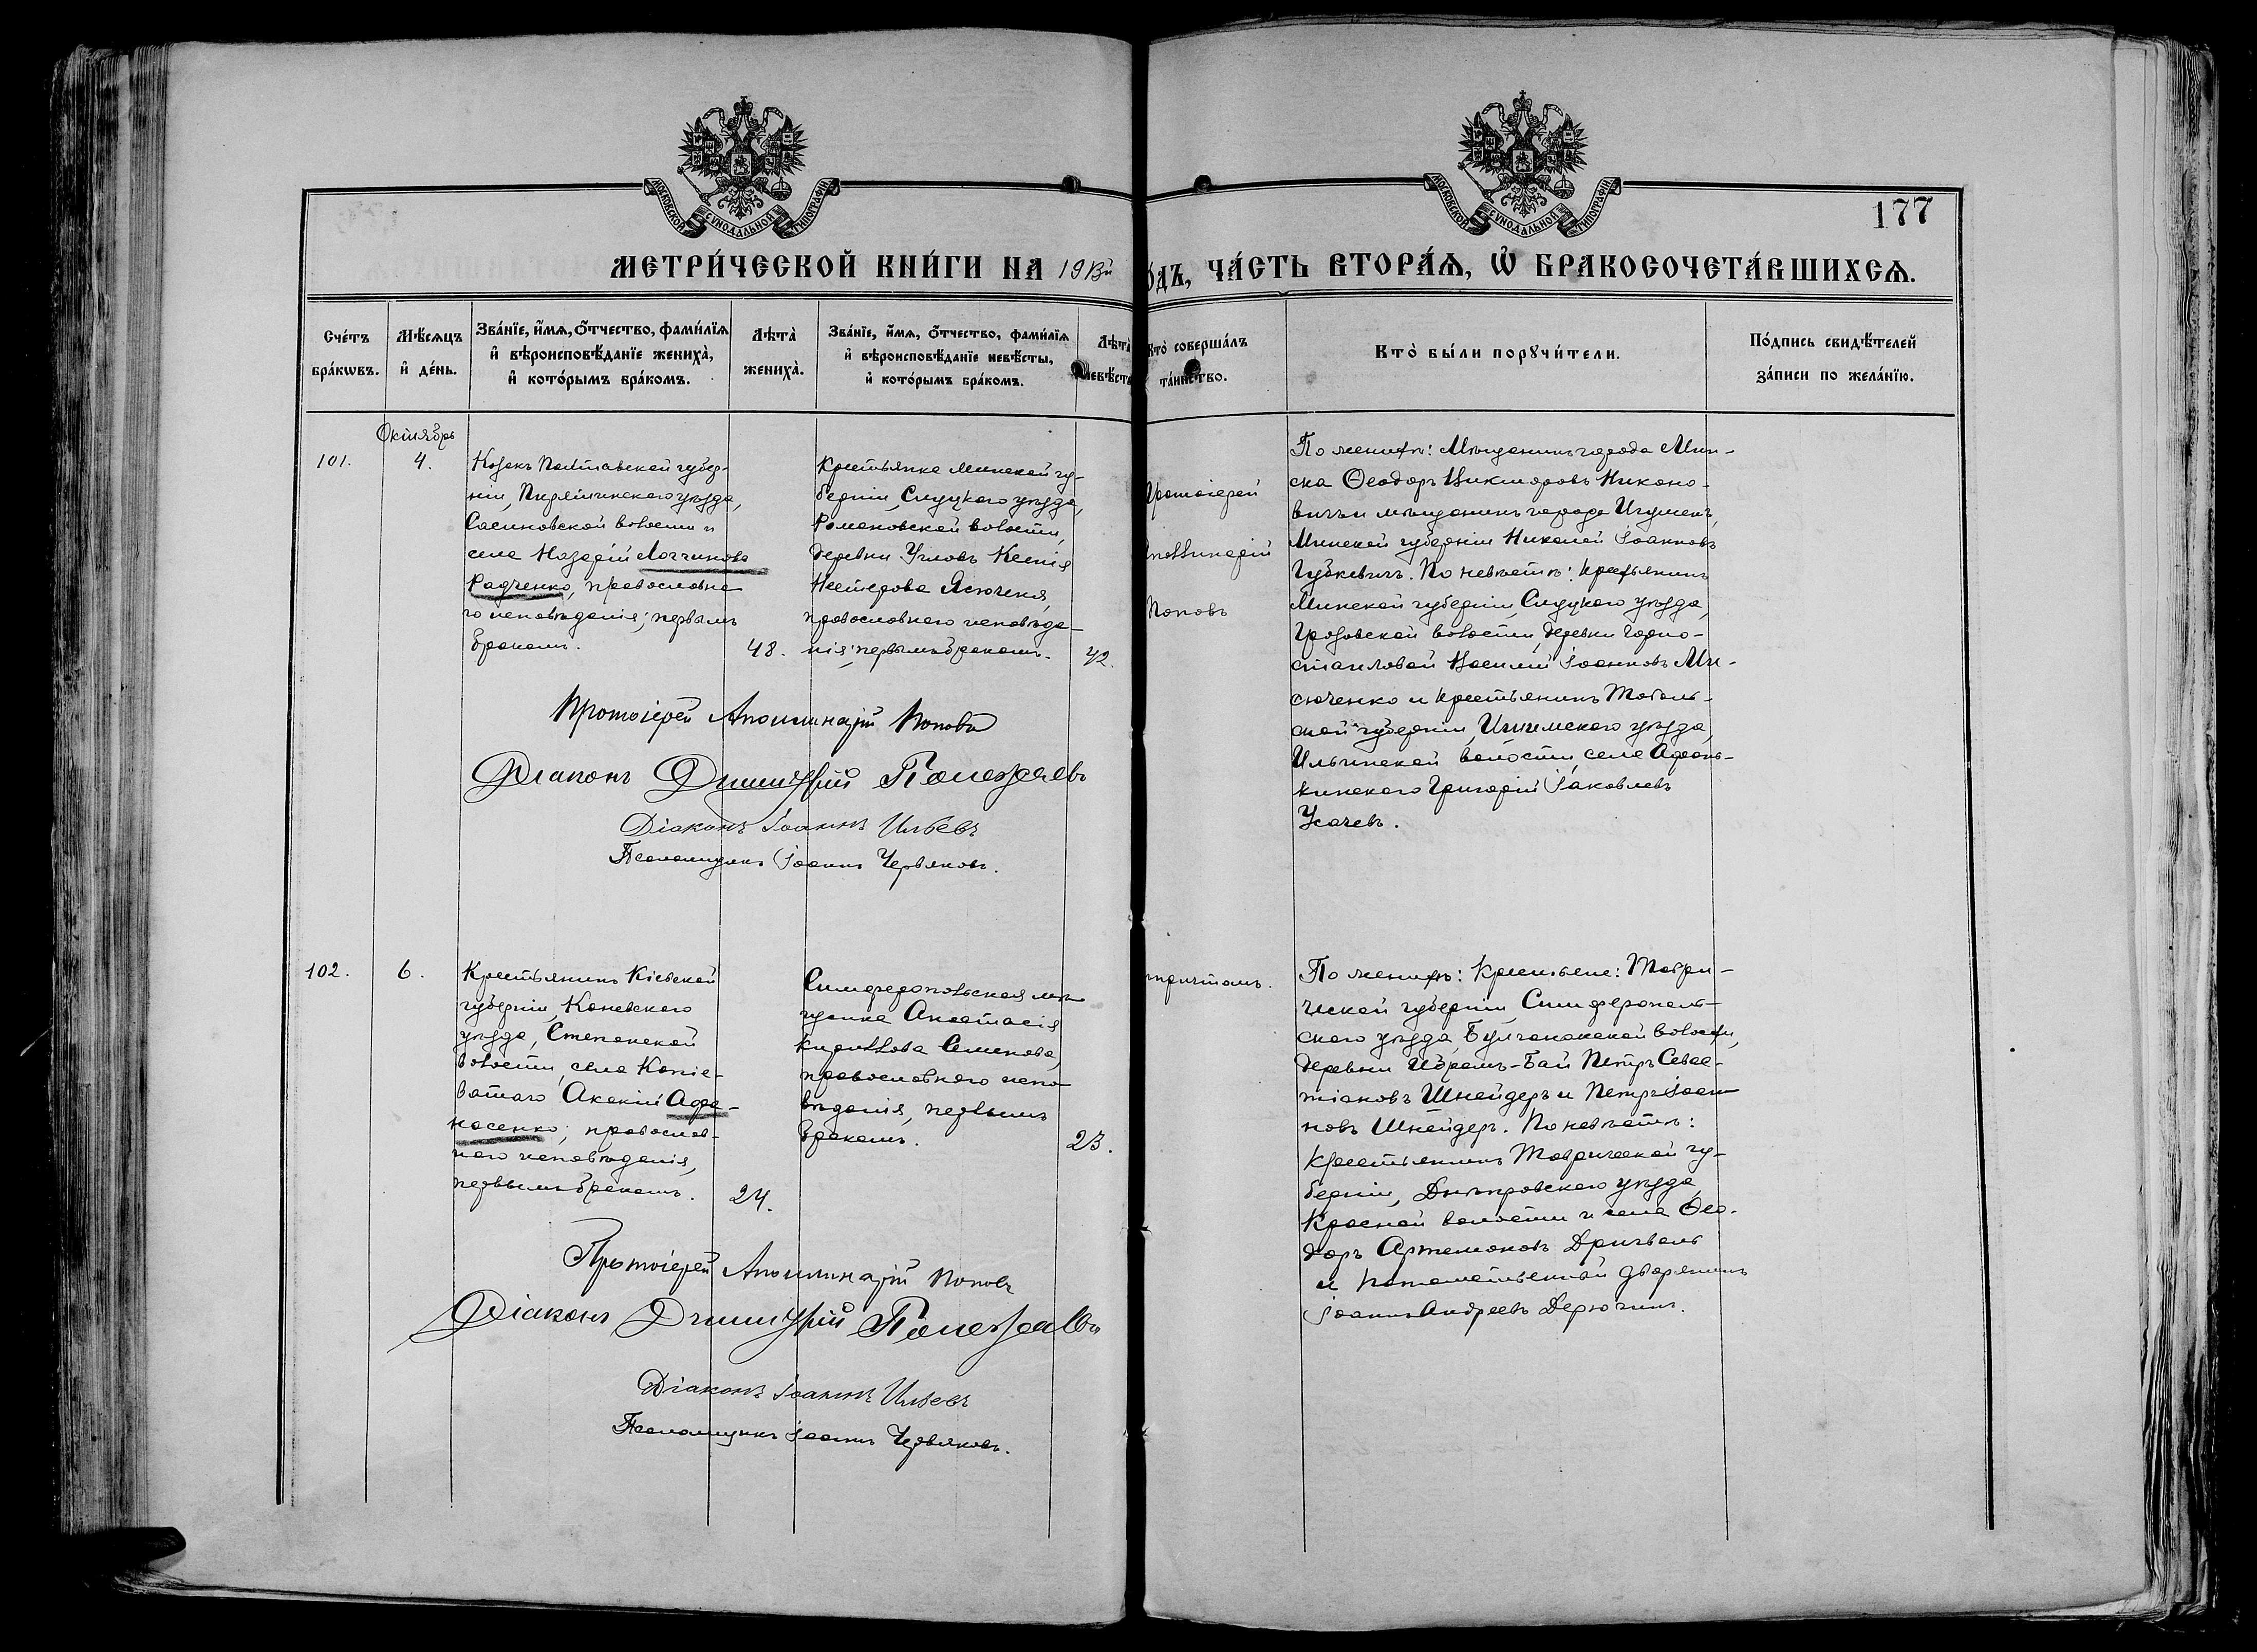 МОСКОВСКОЙ СѴНОДАЛЬНОЙ ТИПОГРАФІИ
МОСКОВСКОЙ СѴНОДАЛЬНОЙ ТИПОГРАФІИ
177
МЕТРИ́ЧЕСКОЙ КНИ́ГИ НА 1913й
О́ДЪ, ЧА́СТЬ ВТОРА́Ѧ, Ѡ҆ БРАКОСОЧЕТА́ВШИХСѦ.
Сче́тъ бра́кѡвъ.
Мѣ́сѧцъ и҆ де́нь.
Зва́нїе, и҆́мѧ, ѻ҆́тчество, фами́лїѧ
и҆ вѣроисповѣ́данїе жениха̀,
и҆ кото́рымъ бра́комъ.
Лѣта̀ жениха̀.
Зва́нїе, и҆́мѧ, ѻ҆́тчество, фами́лїѧ
и҆ вѣроисповѣ́данїе невѣ́сты,
и҆ кото́рымъ бра́комъ.
Лѣта̀ невѣ́сты
Кто̀ соверша́лъ та́инство.
Кто̀ бы́ли порꙋчи́тели.
По́дпись свидѣ́телей
за́писи по жела́нїю.
Октябрь
101.
4.
Козакъ Полтавской губер-
ніи, Пирятинскаго уѣзда,
Сасиновской волости и
села Назарій Логгинова
Радченко, православна
го исповѣданія; первымъ
бракомъ.
48.
Крестьянка Минской гу-
берніи, Слуцкаго уѣзда,
Романовской волости,
деревни Углов Ксенія
Нестерова Ясюченя,
православного исповѣда-
нія; первымъ бракомъ.
42.
Протоіерей
Аполлинарій
Поповъ
По женихѣ: Мѣщанинъ города Мин-
ска Ѳеодоръ Викторовъ Никоно-
вичъ и мѣщанинъ города Игумена,
Минской губерніи Николай Іоанновъ
Губкевичъ. По невѣстѣ: крестьянинъ
Минской губерніи, Слуцкаго уѣзда,
Грозовской волости, деревни Горно-
стаиловой Василій Іоанновъ Ми-
сюченко и крестьянинъ Тоболь-
ской губерніи, Ишимскаго уѣзда,
Ильинской волости, села Афонь-
кинскаго Григорій Іаковлевъ
Усачевъ.
Протоіерей Аполлинарій Поповъ
Діаконъ Димитрій Полежаевъ
Діаконъ Іоаннъ Ильевъ
Псаломщикъ Іоаннъ Червяковъ.
102.
6.
Крестьянинъ Кіевской
губерніи, Каневскаго
уѣзда, Степанской
волости, села Копіе-
ватаго Акакій Афа-
насенко, православ-
наго исповѣданія,
первымъ бракомъ.
24.
Симферопольская мѣ-
щанка Анастасія
Кириллова Семенова,
православного испо-
вѣданія, первымъ
бракомъ.
23.
причтомъ.
По женихѣ: Крестьяне: Таври-
ческой губерніи, Симферополь-
скаго уѣзда, Булганакской волости,
деревни Ибраим-Бай Петръ Севас-
тіановъ Шнейдеръ и Петръ Іоан-
новъ Шнейдеръ. По невѣстѣ:
Крестьянинъ Таврической гу-
берніи, Днѣпровскаго уѣзда
Красной волости и села Ѳео-
доръ Артемоновъ Дригваль
и потомственный дворянинъ
Іоаннъ Андреевъ Дерюгинъ.
Протоіерей Аполлинарій Поповъ
Діаконъ Димитрій Полежаевъ
Діаконъ Іоаннъ Ильевъ
Псаломщикъ Іоаннъ Червяковъ.